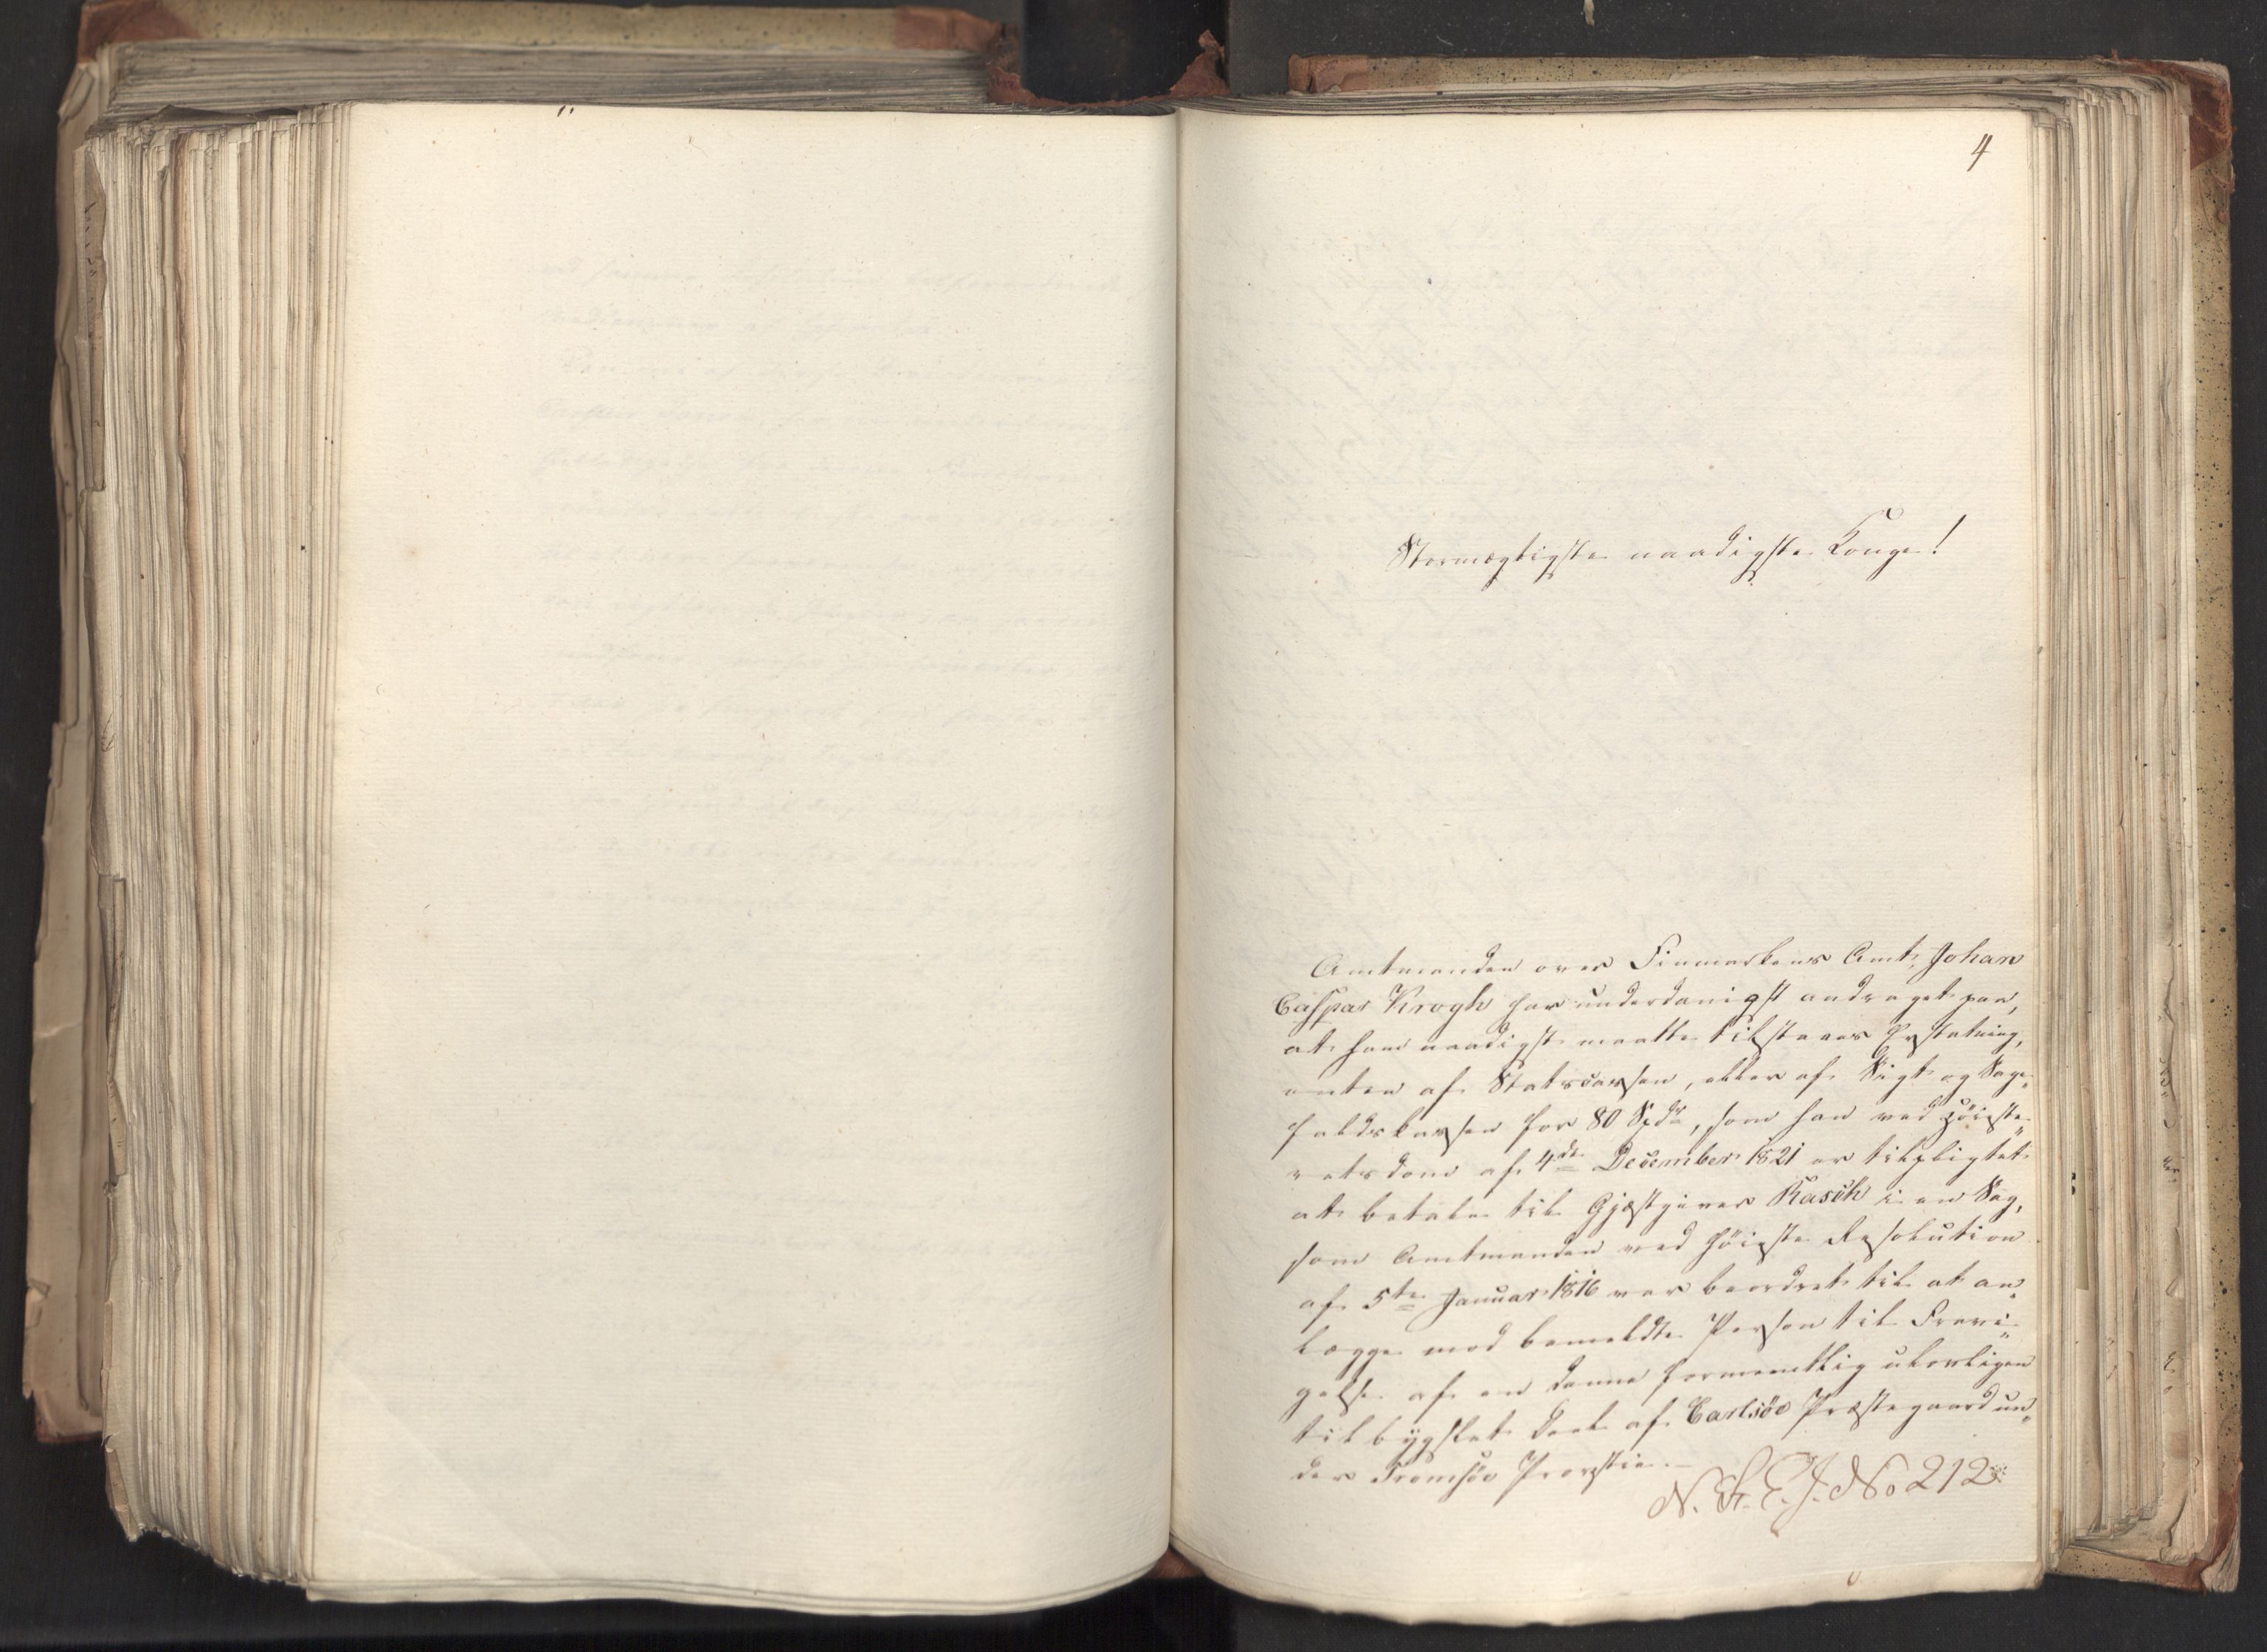 4
Stormægtigste naadigste Konge!
Amtmanden over Finmarkens Amt, Johan
Caspar Krogh har underdanigst andraget paa,
at ham naadigst maatte tilstaaes Erstatning,
enten af Statscassen, eller af Sigt- og Sage„
faldskassen for 80 Spdr, som han ved Høieste„
retsdom af 4de December 1821 er tilpligtet
at betale til Gjæstgiver Rasch i en Sag,
som Amtmanden ved høieste Resolution
af 5te Januar 1816 var beordret til at an„
lægge mod bemeldte Person til Fravi„
gelse af en denne formeentlig ulovligen
tilbygslet Deel af Carlsøe Præstegaard un„
der Tromsøe Provstie.–
N. St. E. J. No 212